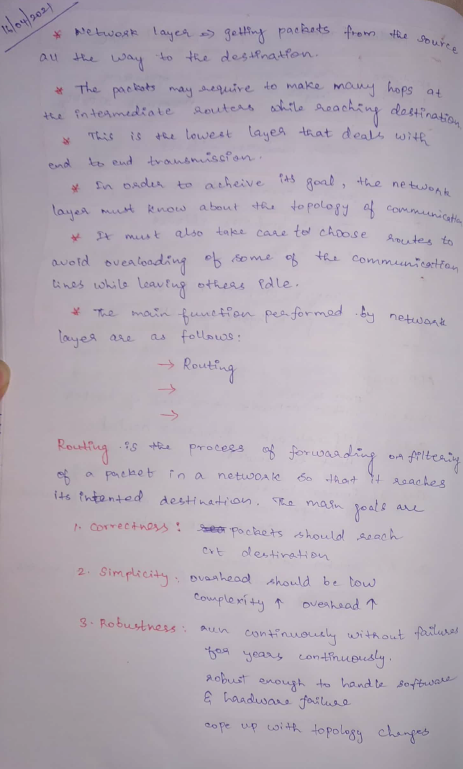 14/04/2021
* Network layer => getting packets from the source
all the way to the destination.
* The packets may require to make many hops at
the intermediate routers while reaching destination
* This is the lowest layer that deals with
end to end transmission.
* In order to acheive its goal, the network
layer must know about the topology of communication
* It must also take care to choose routes to
avoid overloading of some of the communication
lines while leaving others idle.
* The main function performed by network
layer are as follows:
→ Routing
→
→
Routing is the process of forwarding or filtering
of a packet in a network so that it reaches
its intented destination. The main goals are
1. Correctness: packets should reach
crt destination
2. Simplicity: overhead should be low
complexity ↑ overhead ↑
3. Robustness: run continuously without failures
for years continuously.
robust enough to handle software
& hardware failure
cope up with topology changes